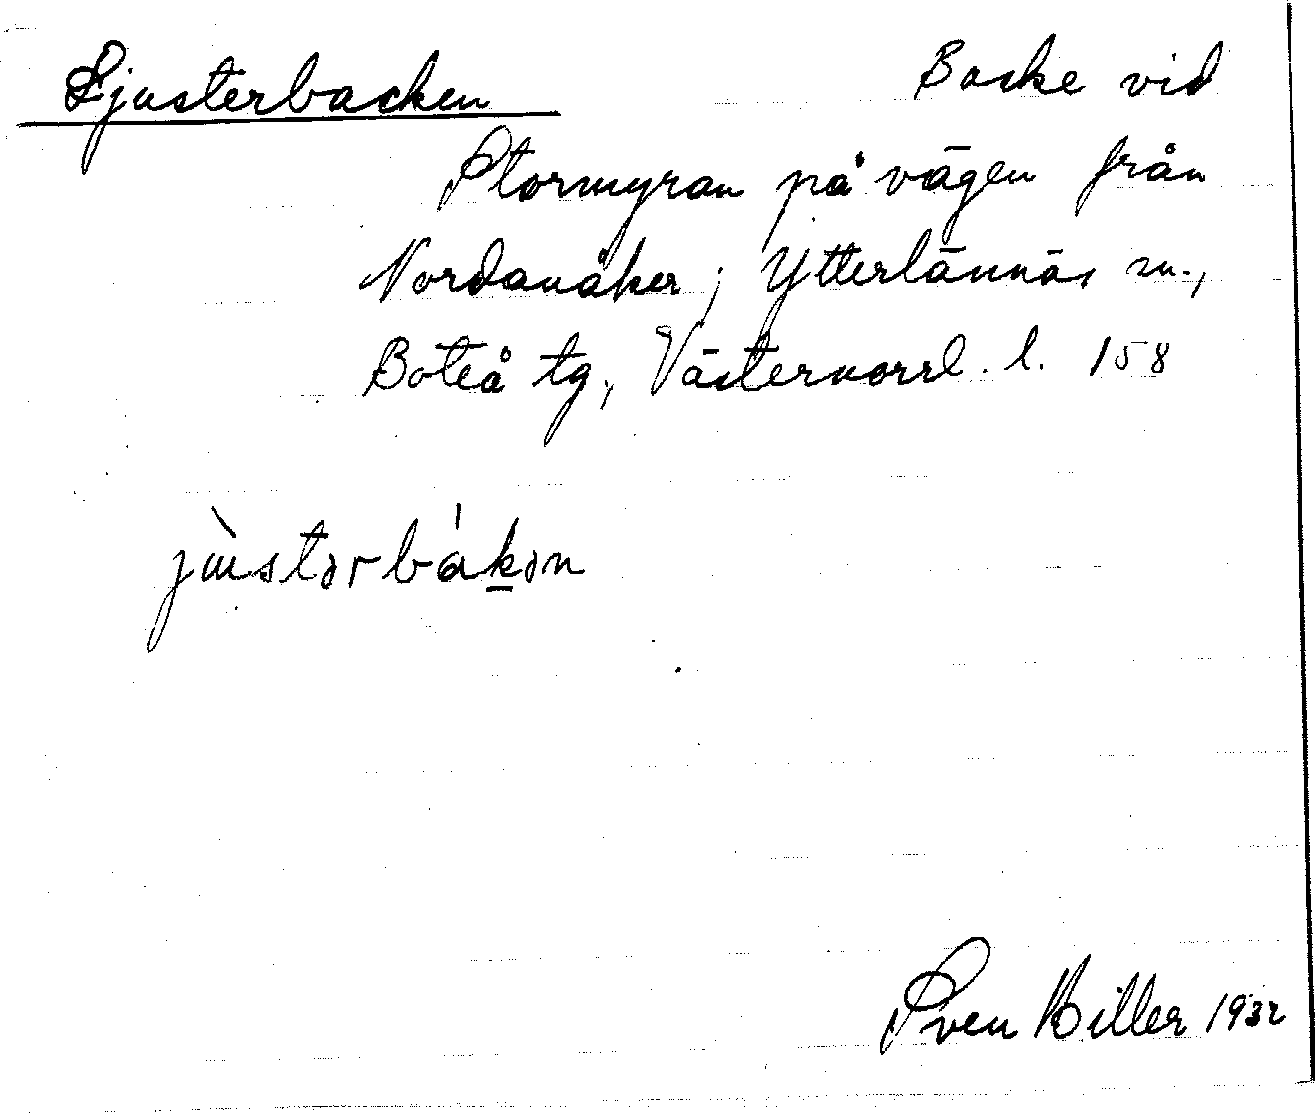 Ljusterbacken Backe vid
Stormyran på vägen från
Nordanåker; Ytterlännäs sn.,
Boteå tg., Västernorrl. l. 158
jùstərbákən
Sven Hiller 1932